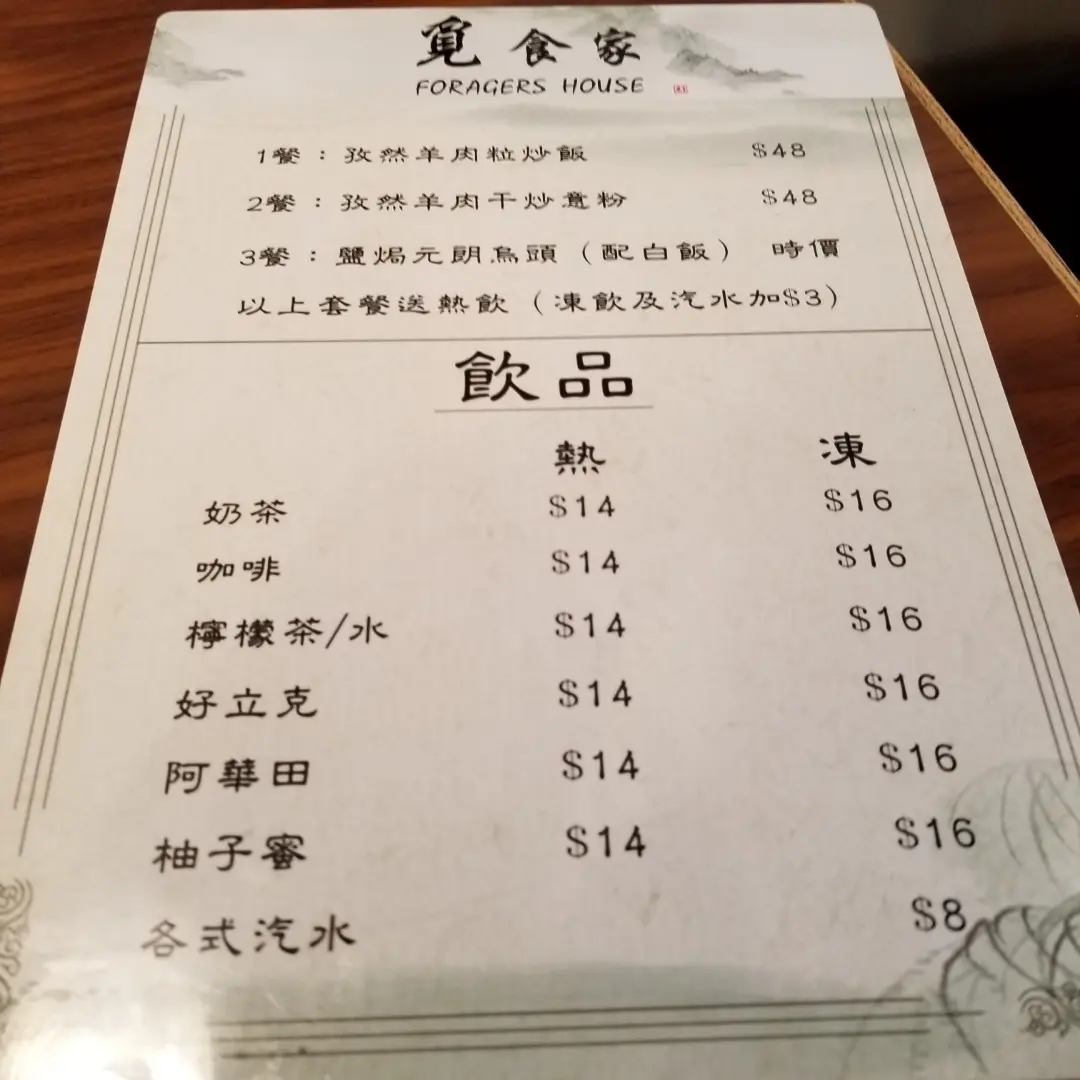 覓食家
FORAGERS HOUSE
1餐：孜然羊肉粒炒飯 $48
2餐：孜然羊肉干炒意粉 $48
3餐：鹽焗元朗烏頭（配白飯） 時價
以上套餐送熱飲（凍飲及汽水加$3）
飲品
熱 凍
奶茶 $14 $16
咖啡 $14 $16
檸檬茶/水 $14 $16
好立克 $14 $16
阿華田 $14 $16
柚子蜜 $14 $16
各式汽水 $8